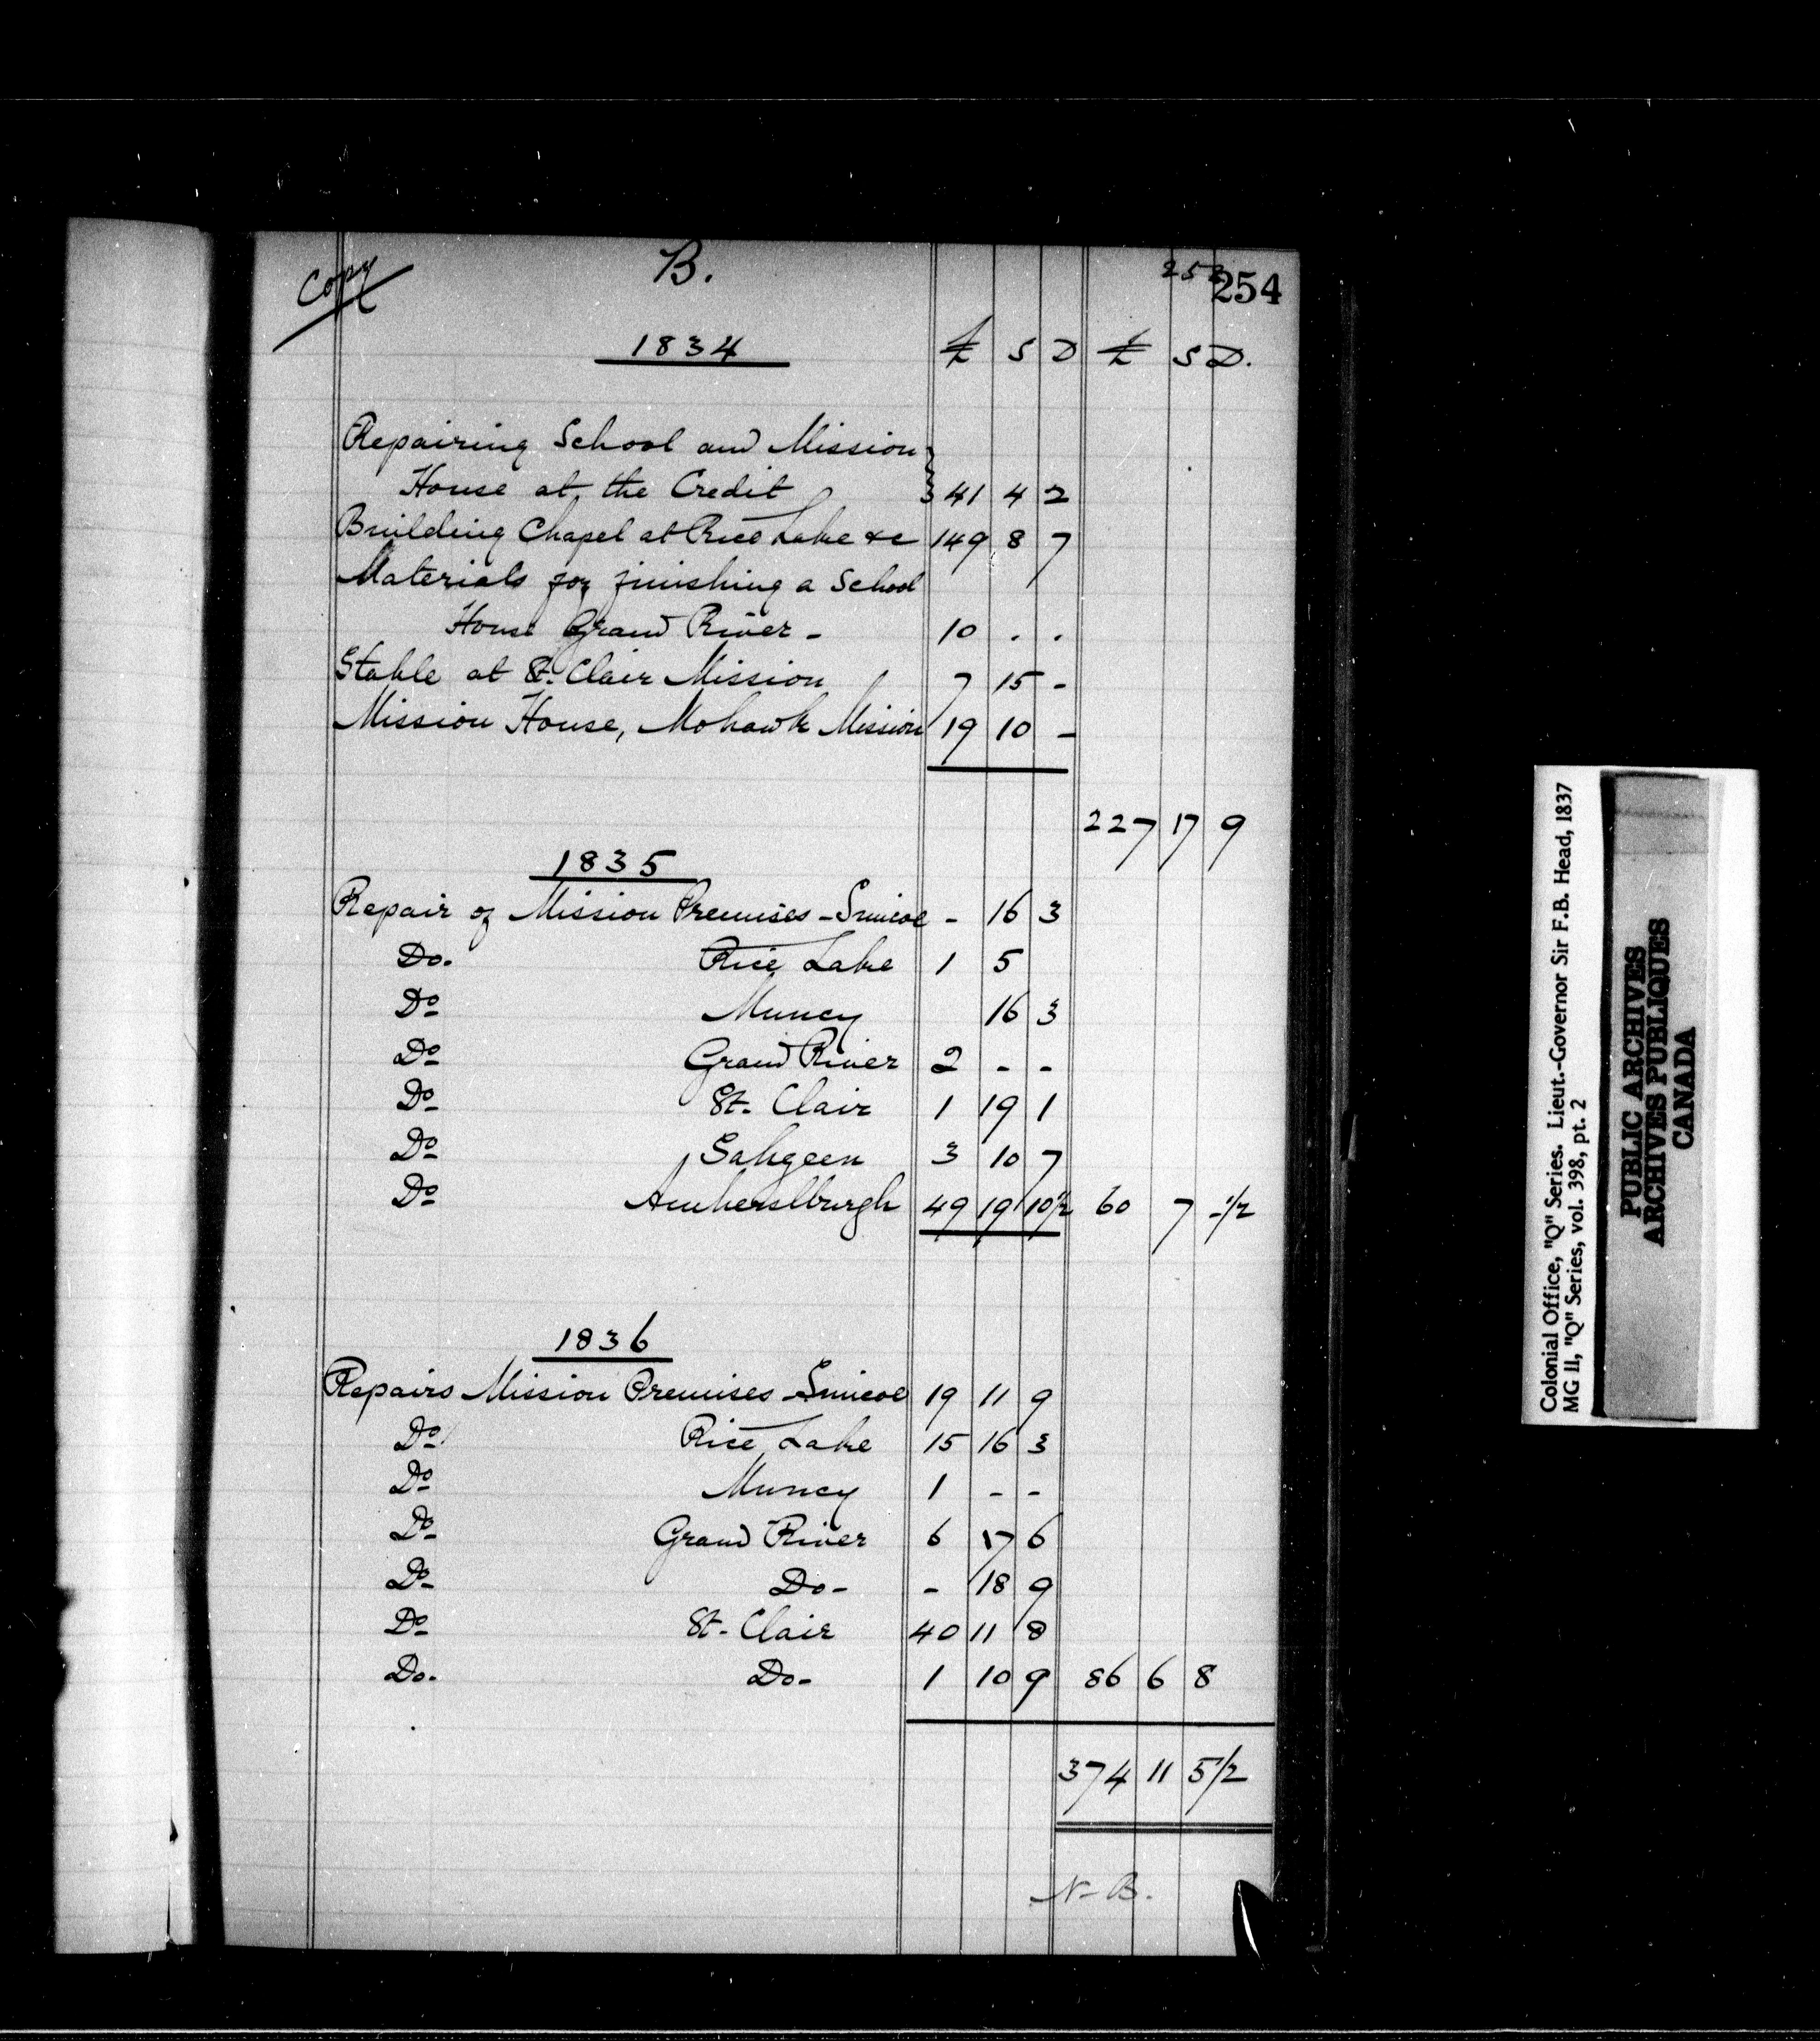 Copy
B.
25
254
1834 £ S D £ S D.
Repairing School and Mission
House at the Credit } 41 4 2
Building Chapel at Rice Lake &c 149 8 7
Materials for finishing a School
House Grand River - 10 . .
Stable at St. Clair Mission 7 15 -
Mission House, Mohawk Mission 19 10 -
227 17 9
1835
Repair of Mission Premises - Simcoe - 16 3
Do. Rice Lake 1 5
Do Muncy 16 3
Do Grand River 2 - -
Do St. Clair 1 19 1
Do Sahgeen 3 10 7
Do Amherstburgh 49 19 10½ 60 7 -½
1836
Repairs Mission Premises - Simcoe 19 11 9
Do Rice Lake 15 16 3
Do Muncy 1 - -
Do Grand River 6 17 6
Do Do - - 18 9
Do St. Clair 40 11 8
Do. Do - 1 10 9 86 6 8
374 11 5½
N-B.
Colonial Office, "Q" Series. Lieut.-Governor Sir F.B. Head, 1837
MG 11, "Q" Series, vol. 398, pt. 2
PUBLIC ARCHIVES
ARCHIVES PUBLIQUES
CANADA